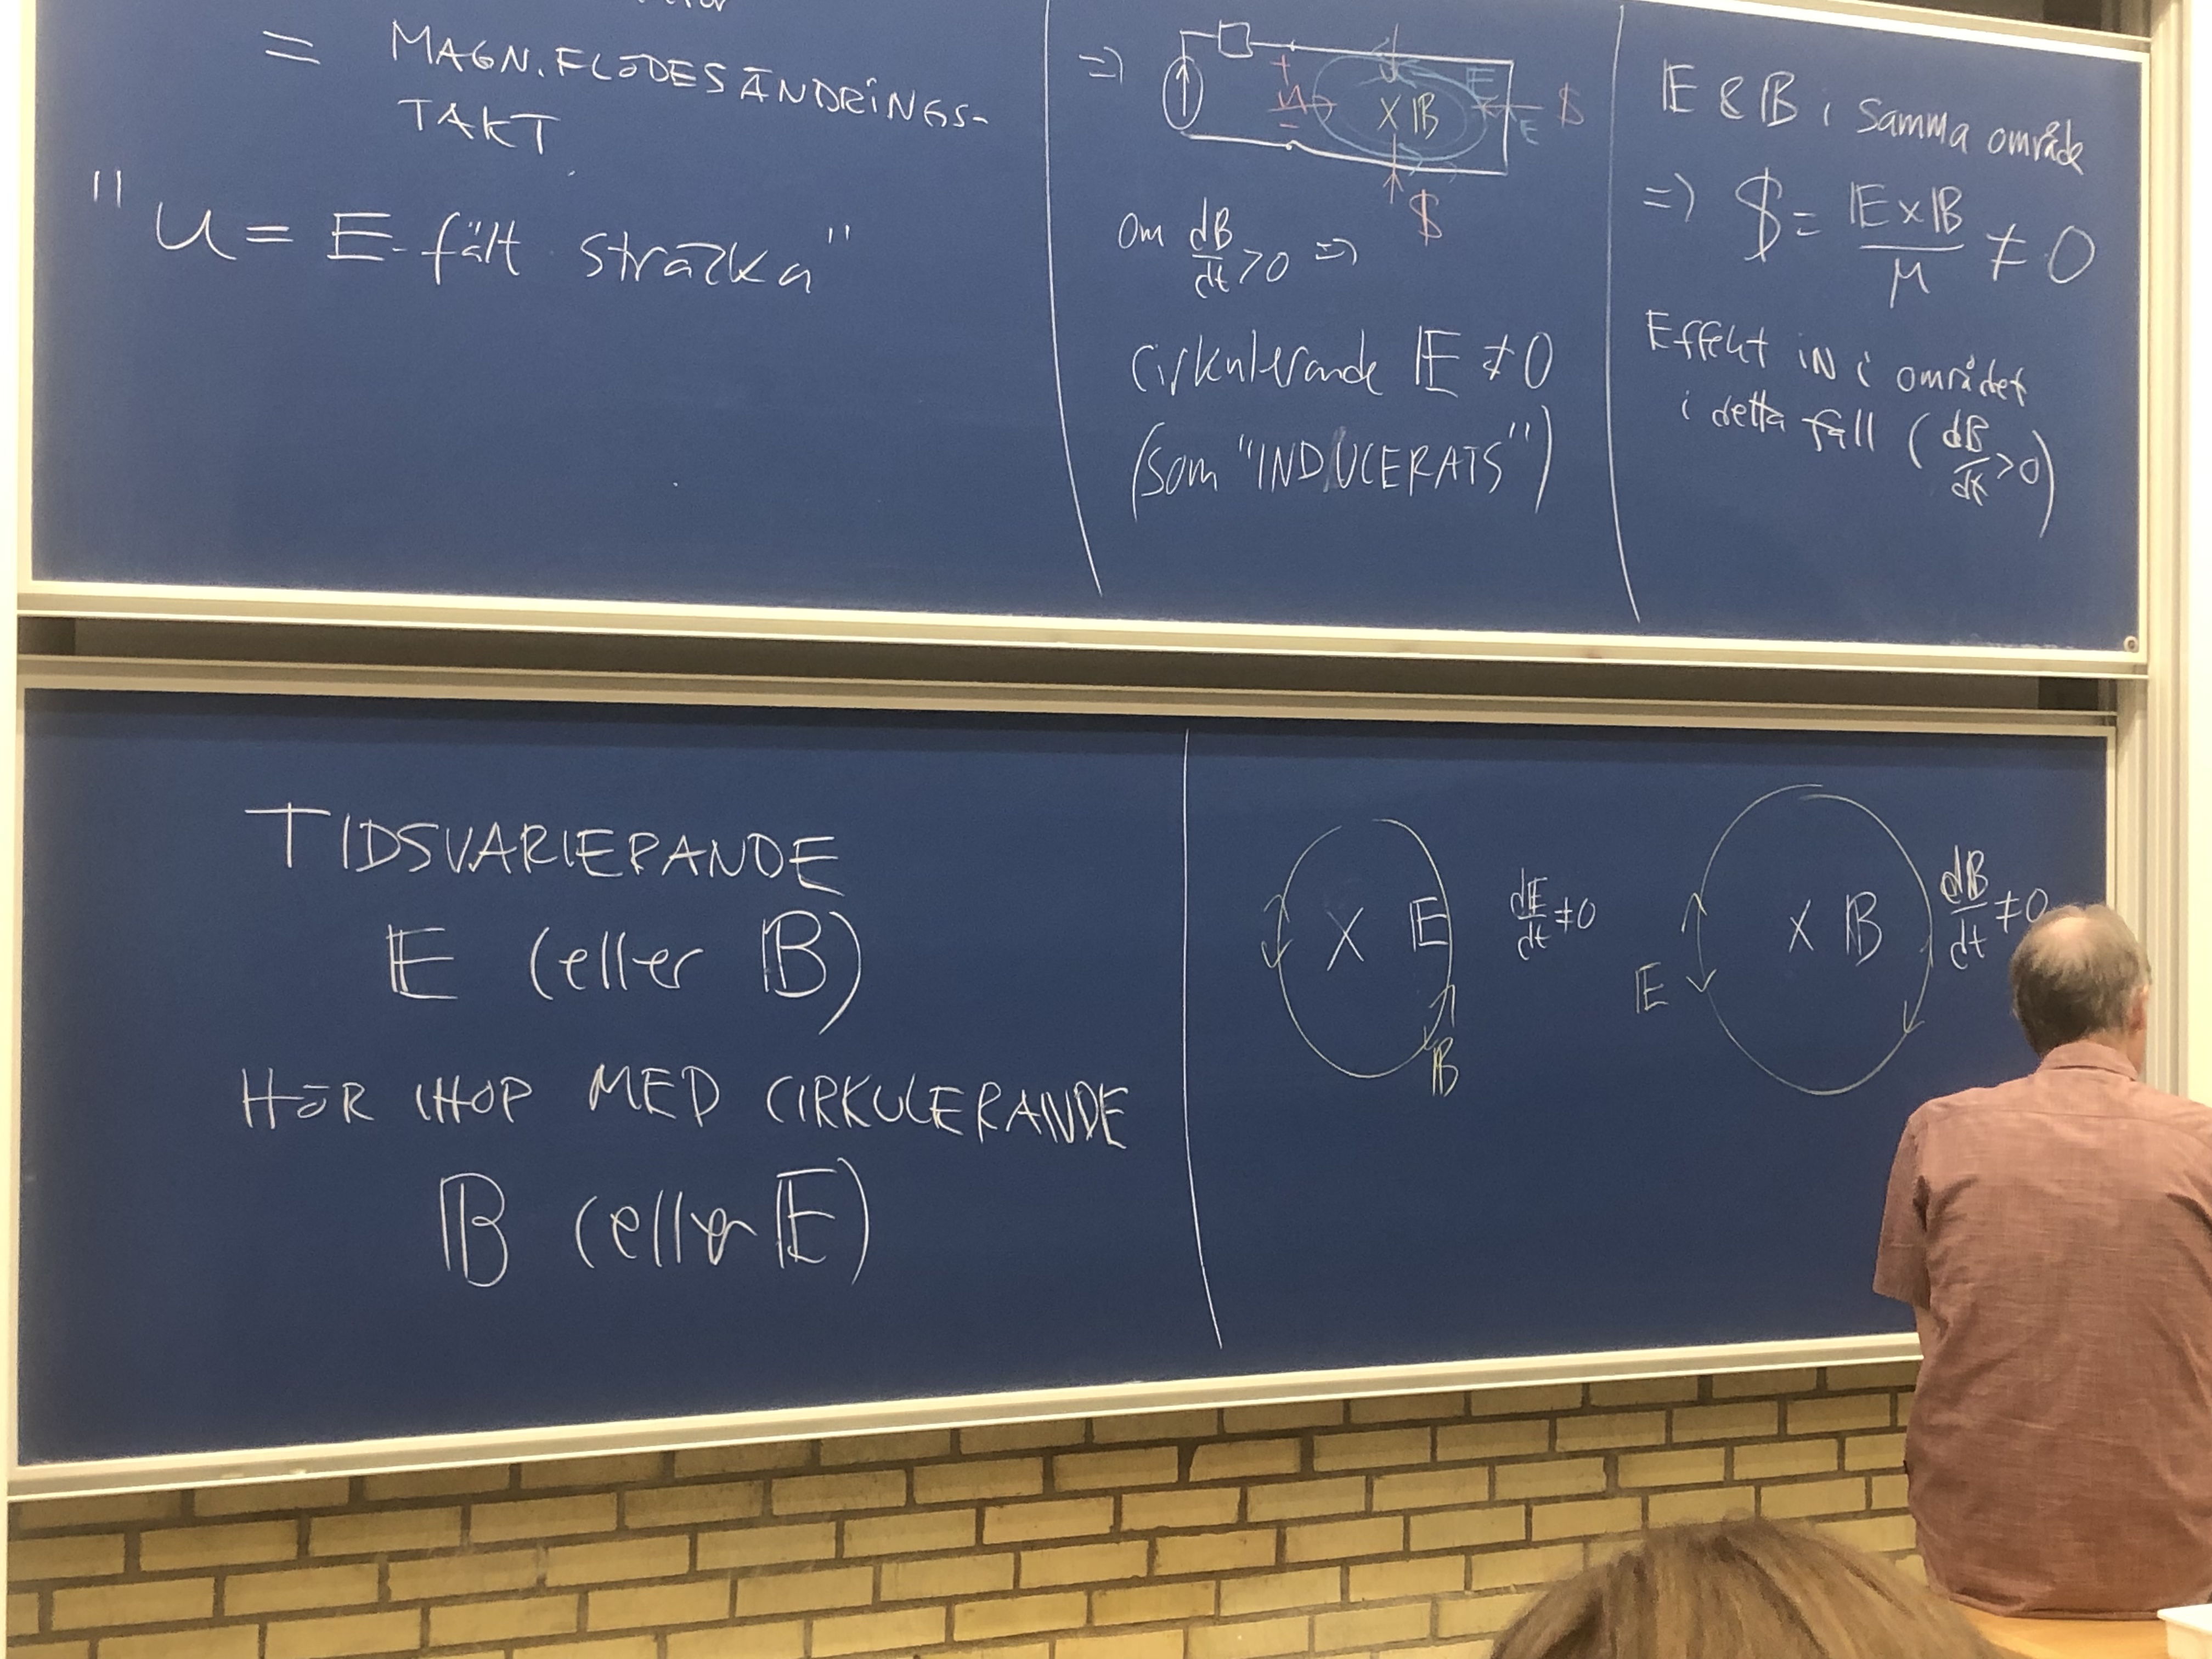 = MAGN. FLÖDESÄNDRINGS-
TAKT
"U = E-fält · sträcka"
=>
+
U
-
X B
E
E
$
$
Om dB/dt > 0 =>
cirkulerande E ≠ 0
(som "INDUCERATS")
E & B i samma område
=> $ = E x B / μ ≠ 0
Effekt IN i området
i detta fall (dB/dt > 0)
TIDSVARIERANDE
E (eller B)
HÖR IHOP MED CIRKULERANDE
B (eller E)
X E
dE/dt ≠ 0
B
X B
dB/dt ≠ 0
E